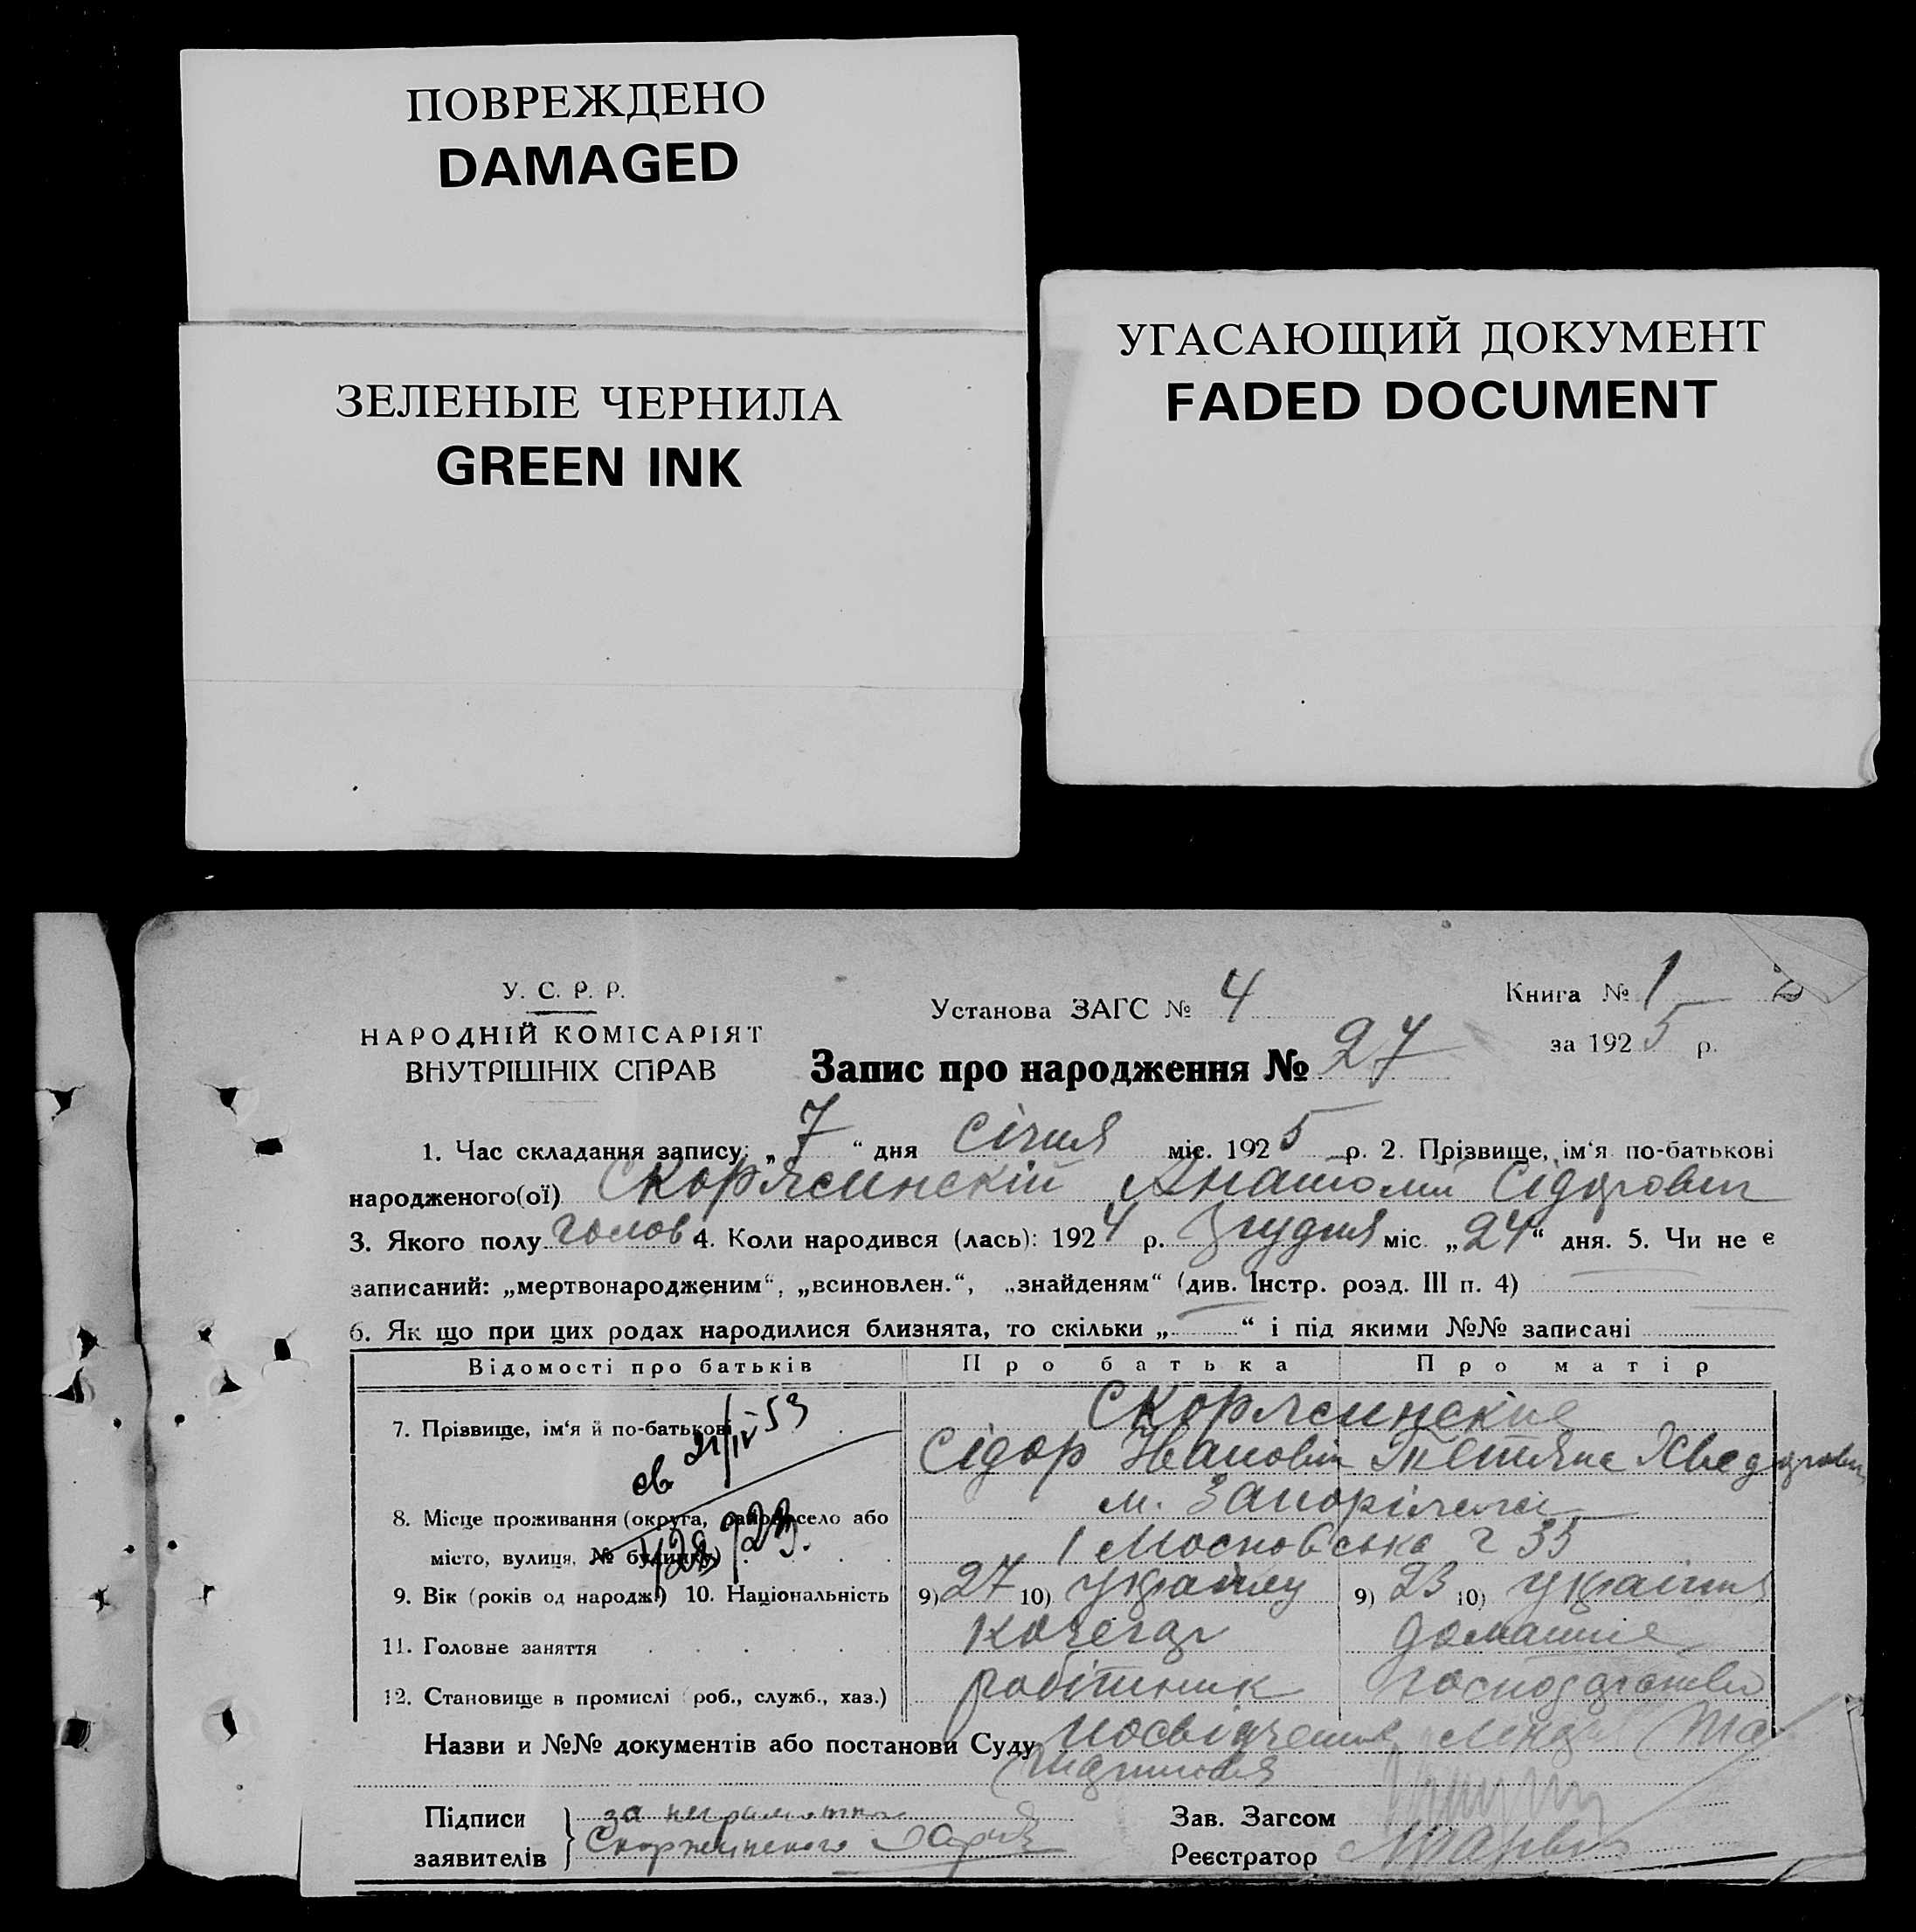 ПОВРЕЖДЕНО
DAMAGED
ЗЕЛЕНЫЕ ЧЕРНИЛА
GREEN INK
УГАСАЮЩИЙ ДОКУМЕНТ
FADED DOCUMENT
У. С. Р. Р.
НАРОДНІЙ КОМІСАРІЯТ
ВНУТРІШНІХ СПРАВ
Установа ЗАГС № 4
Книга № 1
за 1925 р.
Запис про народження № 27
1. Час складання запису: „7“ дня Січня міс. 1925 р. 2. Прізвище, ім'я по-батькові
народженого(ої) Скоржинскій Анатолий Сідорович
3. Якого полу голов 4. Коли народився (лась): 1924 р. Грудня міс. „24“ дня. 5. Чи не є
записаний: „мертвонародженим“, „всиновлен.“, „знайденям“ (див. Інстр. розд. III п. 4)
6. Як що при цих родах народилися близнята, то скільки „ “ і під якими №№ записані
Відомості про батьків Про батька Про матір
7. Прізвище, ім'я й по-батькові Скоржинские
Сідор Иванович Тетяна Хведоровна
св 21/IV-53
8. Місце проживання (округа, район, село або м. Запоріжжя
місто, вулиця, № будинку) Московська 35
9. Вік (років од народж.) 10. Національність 9) 27 10) українец 9) 23 10) українка
11. Головне заняття Кочегар домашнє
12. Становище в промислі (роб., служб., хаз.) робітник господарство
Назви и №№ документів або постанови Суду посвідчення
Підписи за неграмотного
заявителів Скоржинского
Зав. Загсом
Реєстратор